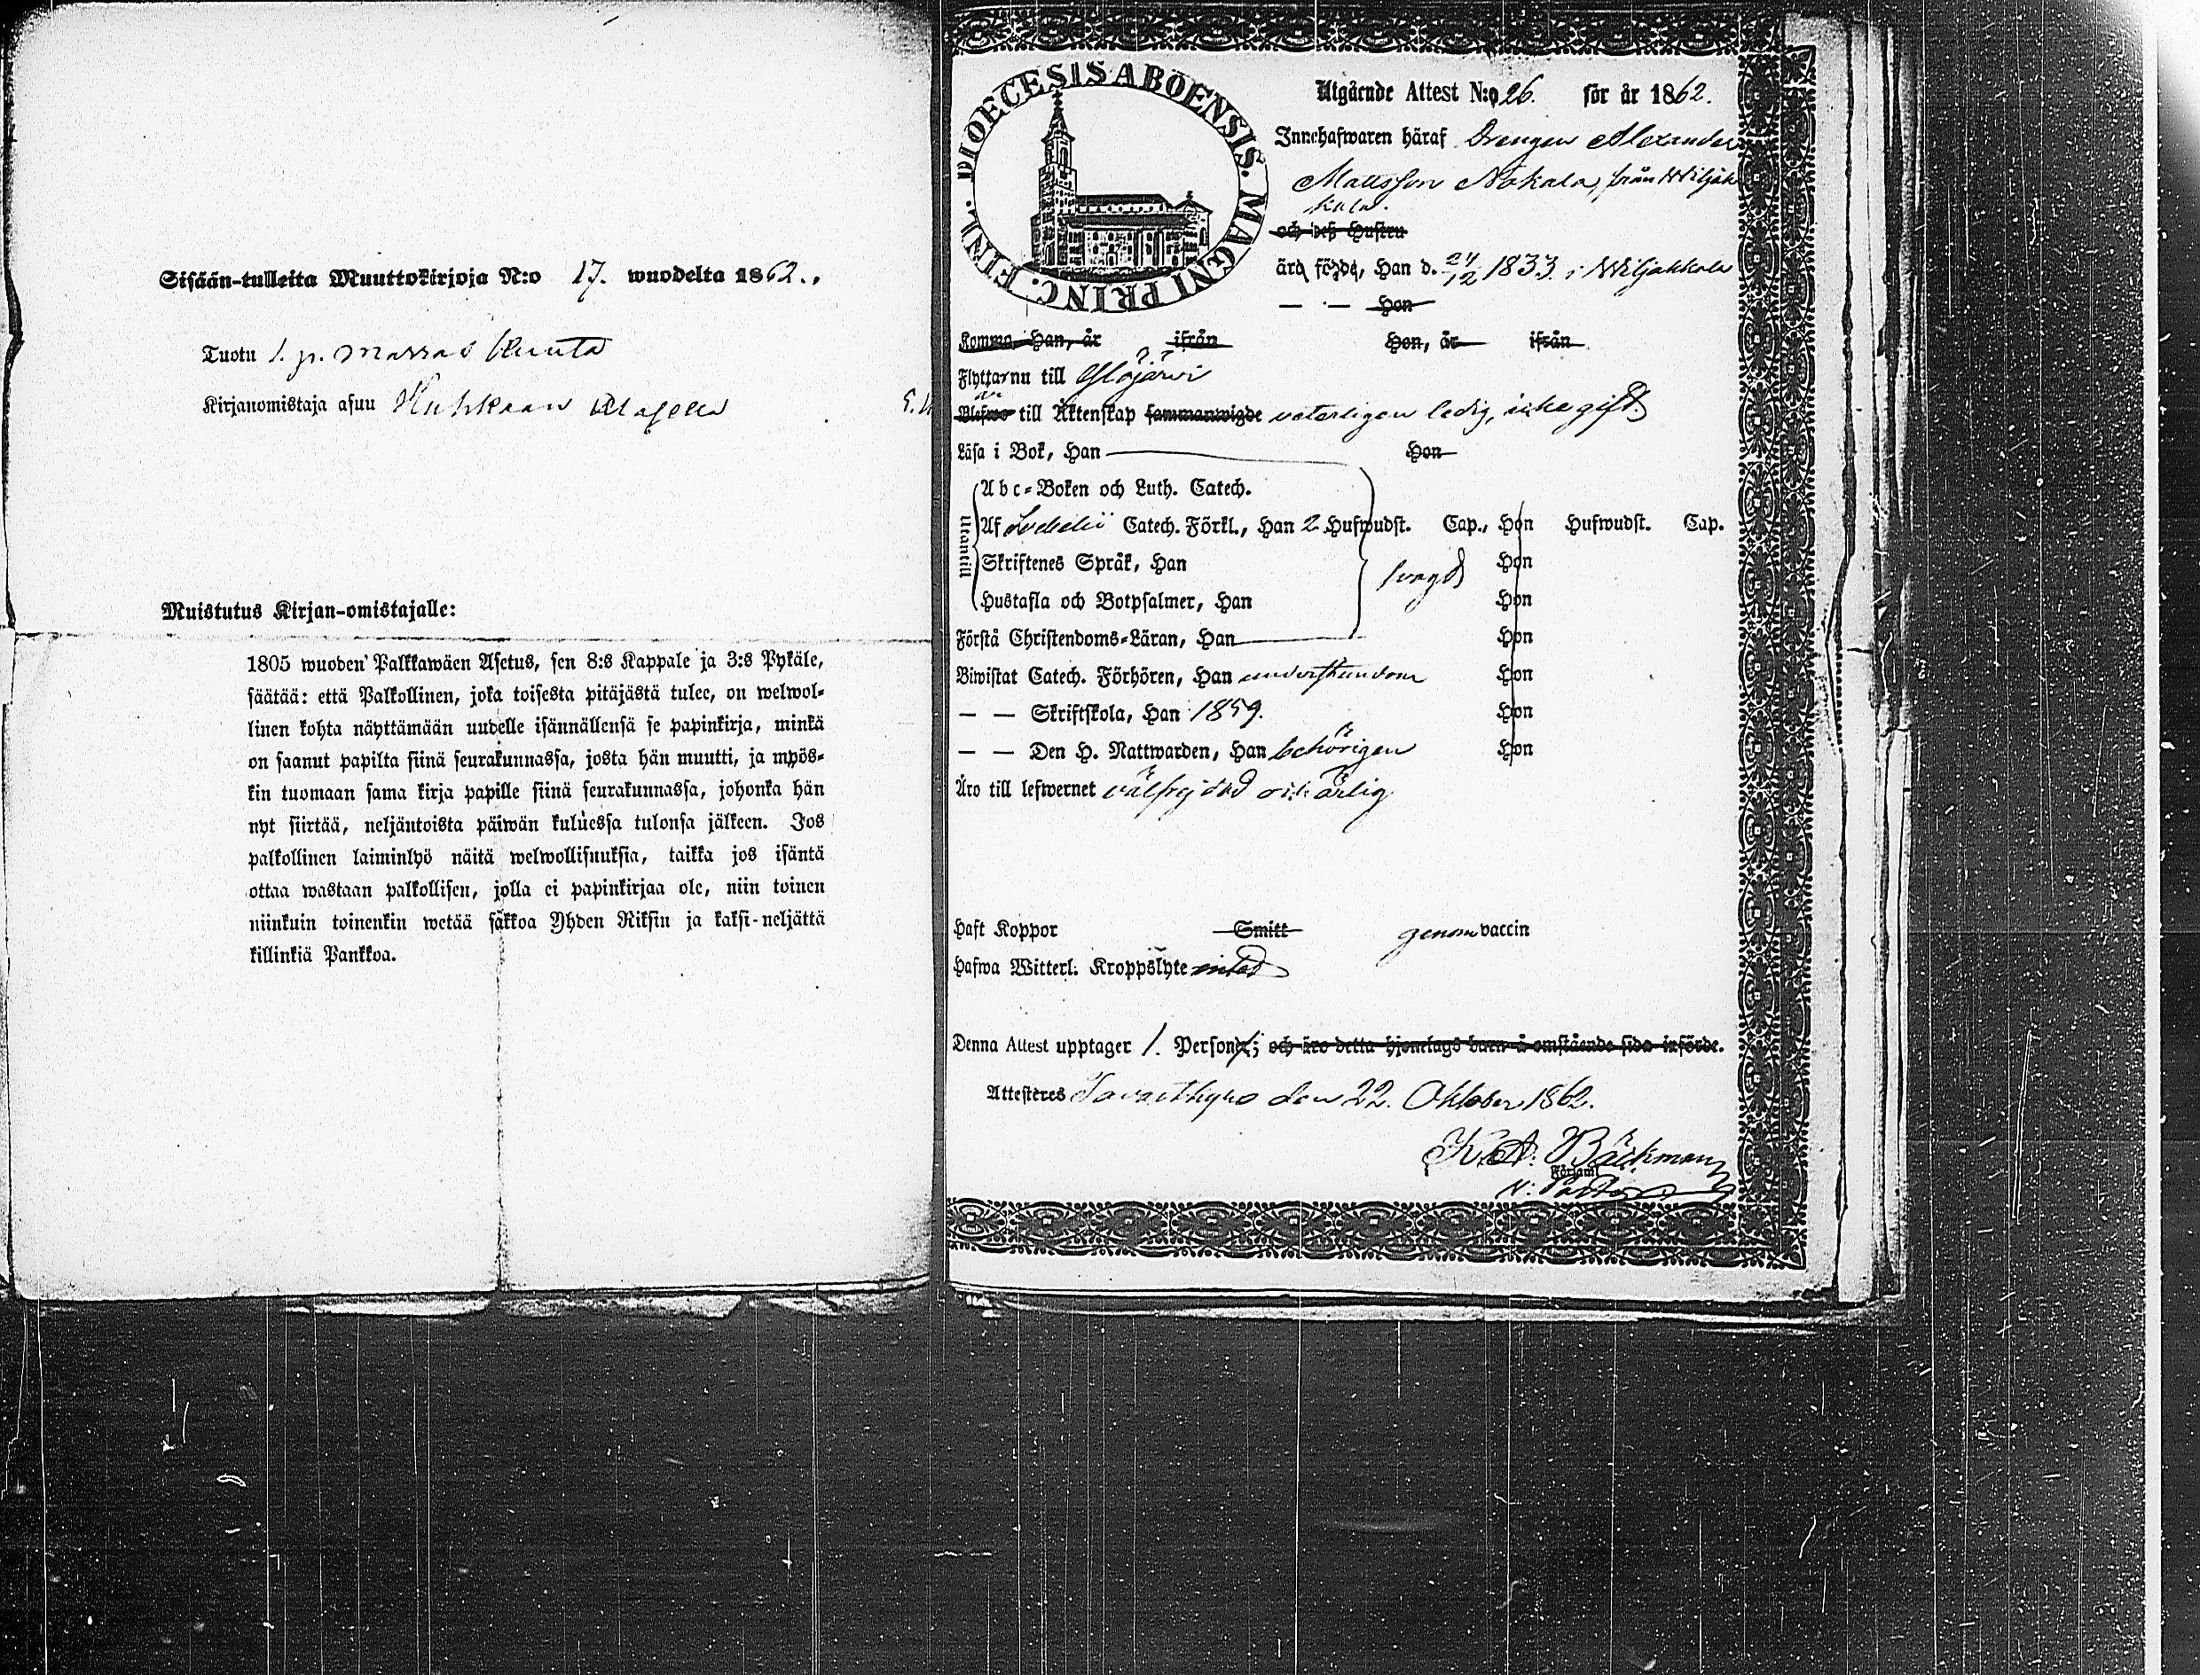 Sisään-tulleita Muuttokirjoja N:o 17. wuodelta 1862.
Tuotu 1. p. Marras Kuuta
Kirjanomistaja asuu
Muistutus Kirjan-omistajalle:
1805 wuoden Palkkawäen Asetus, sen 8:s Kappale ja 3:s Pykäle,
säätää: että Palkollinen, joka toisesta pitäjästä tulee, on welwol-
linen kohta näyttämään uudelle isännällensä se papinkirja, minkä
on saanut papilta siinä seurakunnassa, josta hän muutti, ja myös-
kin tuomaan sama kirja papille siinä seurakunnassa, johonka hän
nyt siirtää, neljäntoista päiwän kuluessa tulonsa jälkeen. Jos
palkollinen laiminlyö näitä welwollisuuksia, taikka jos isäntä
ottaa wastaan palkollisen, jolla ei papinkirjaa ole, niin toinen
niinkuin toinenkin wetää sakkoa Yhden Riksin ja kaksi-neljättä
killinkiä Pankkoa.
DIOECESIS ABOENSIS. MAGNI PRINC. FINL.
Utgående Attest N:o 26. för år 1862.
Innehafwaren häraf Drengen Alexander
Mattsson Nokala, från Wiljak
kala.
och deß Hustru
äro födde, Han d. 24/12 1833 i Wiljakkala
— — Hon
Komma, Han, år ifrån Hon, år ifrån
Flyttar nu till Ylöjärvi
Blefwo till Äktenskap sammanwigde veterligen ledig, icke gift
Läsa i Bok, Han Hon
Utantill
Abc-Boken och Luth. Catech.
Af Catech. Förkl., Han 2 Hufwudst. Cap., Hon Hufwudst. Cap.
Skriftenes Språk, Han svagt Hon
Hustafla och Botpsalmer, Han Hon
Förstå Christendoms-Läran, Han Hon
Biwistat Catech. Förhören, Han understundom Hon
— — Skriftskola, Han 1859. Hon
— — Den H. Nattwarden, Han behörigen Hon
Äro till lefwernet välfrejdad och ärlig
Haft Koppor Smitt genom vaccin
Hafwa Witterl. Kroppslyte intet
Denna Attest upptager 1. Person; och äro detta hjonelags barn å omstående sida införde.
Attesteres Tavastkyro den 22. Oktober 1862.
K. A. Bäckman
v. Pastor